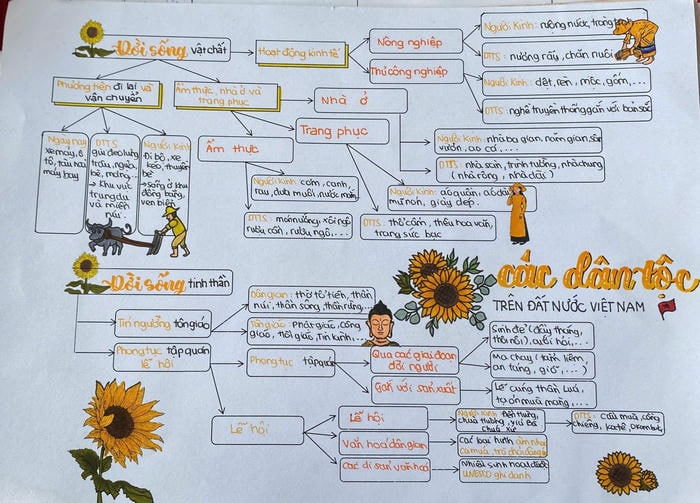 Đời sống vật chất
Hoạt động kinh tế
Nông nghiệp
Người Kinh: ruộng nước, trang
DTTS: nương rẫy, chăn nuôi
Thủ công nghiệp
Người Kinh: dệt, rèn, mộc, gốm,...
DTTS: nghề truyền thống gắn với bản sắc
Phương tiện đi lại và
vận chuyển
Ẩm thực, nhà ở và
trang phục
Nhà ở
Người Kinh: nhà ba gian, năm gian, sân
vườn, ao cá,...
DTTS: nhà sàn, trình tường, nhà chung
(nhà rông, nhà dài)
Trang phục
Người Kinh: áo quần, áo dài
mũ nón, giày dép.
DTTS: thổ cẩm, thêu hoa văn,
trang sức bạc
Ẩm thực
Người Kinh: cơm, canh,
rau, dưa muối, nước mắm,
DTTS: món nướng, xôi ngô
rượu cần, rượu ngô,...
Ngày nay
xe máy, ô
tô, tàu hoả
máy bay
DTTS
gùi đeo lưng
trâu, ngựa,
bè, mảng...
→ Khu vực
trung du
và miền
núi.
Người Kinh
Đi bộ, xe
kéo, thuyền
bè
→ sống ở khu
đồng bằng,
ven biển
Đời sống tinh thần
các dân tộc
TRÊN ĐẤT NƯỚC VIỆT NAM
Tín ngưỡng tôn giáo
Dân gian: thờ tổ tiên, thần
núi, thần sông, thần rừng,...
Tôn giáo: Phật giáo, Công
giáo, Hồi giáo, Tin Lành,...
Phong tục tập quán
lễ hội
Phong tục tập quán
Qua các giai đoạn
đời người
Sinh đẻ (đầy tháng,
thôi nôi), cưới hỏi,...
Ma chay (tẩm liệm,
an táng, giỗ,...)
Gắn với sản xuất
Lễ cúng thần Lúa,
tạ ơn mùa màng,...
Lễ hội
Lễ hội
Người Kinh: Đền Hùng,
chùa Hương, vía Bà
Chúa Xứ
DTTS: Cầu mùa, cồng
chiêng, katê, Ookombok
Văn hoá dân gian
Các loại hình âm nhạc
ca múa, trò chơi dân gian
Các di sản văn hoá
Nhiều sinh hoạt được
UNESCO ghi danh